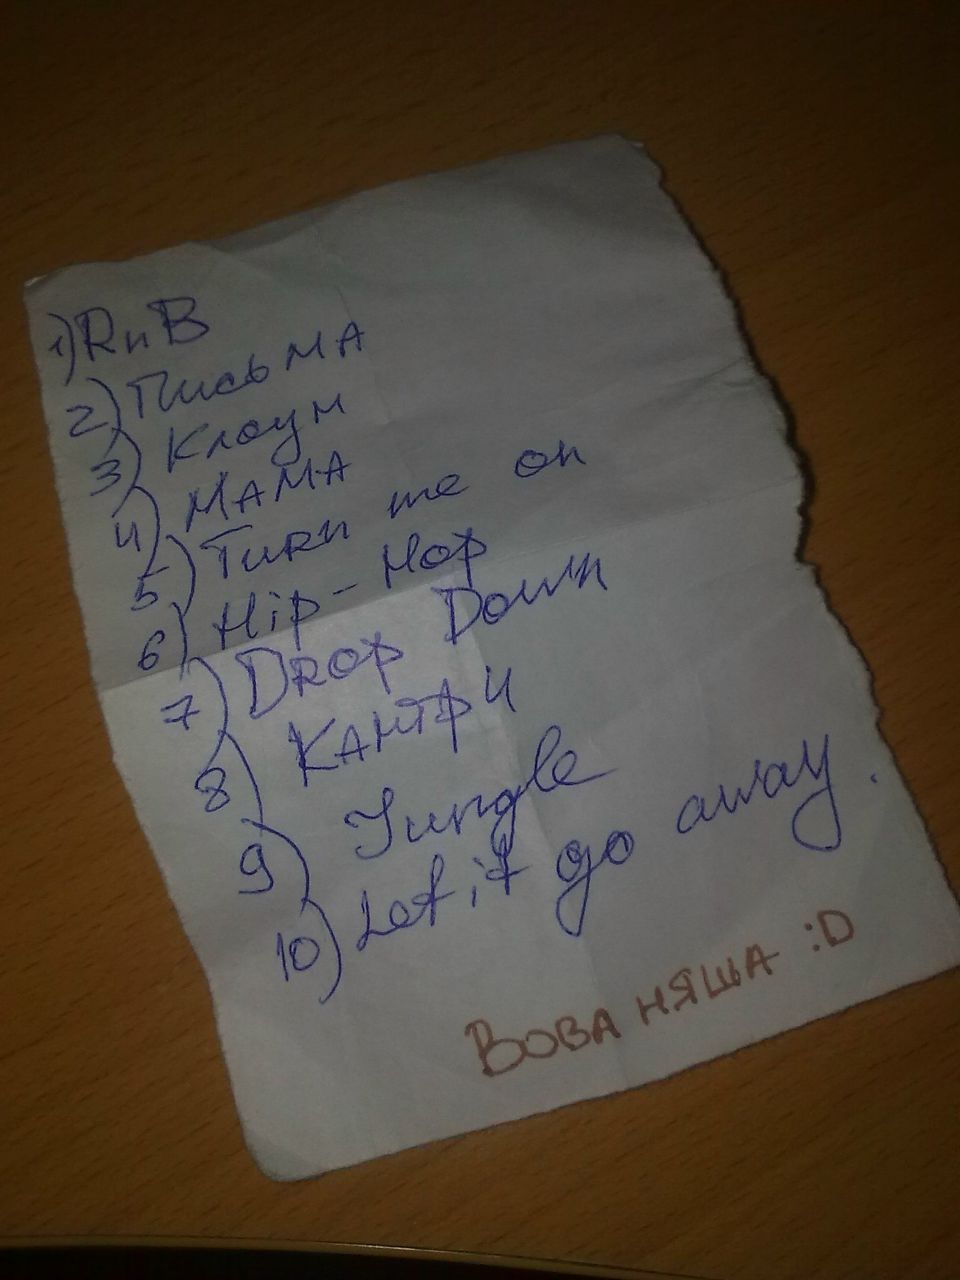 1) RnB
2) Письма
3) Клоун
4) МАМА
5) Turn me on
6) Hip-Hop
7) Drop Down
8) КАНТРИ
9) Jungle
10) Let it go away.
Вова няша :D